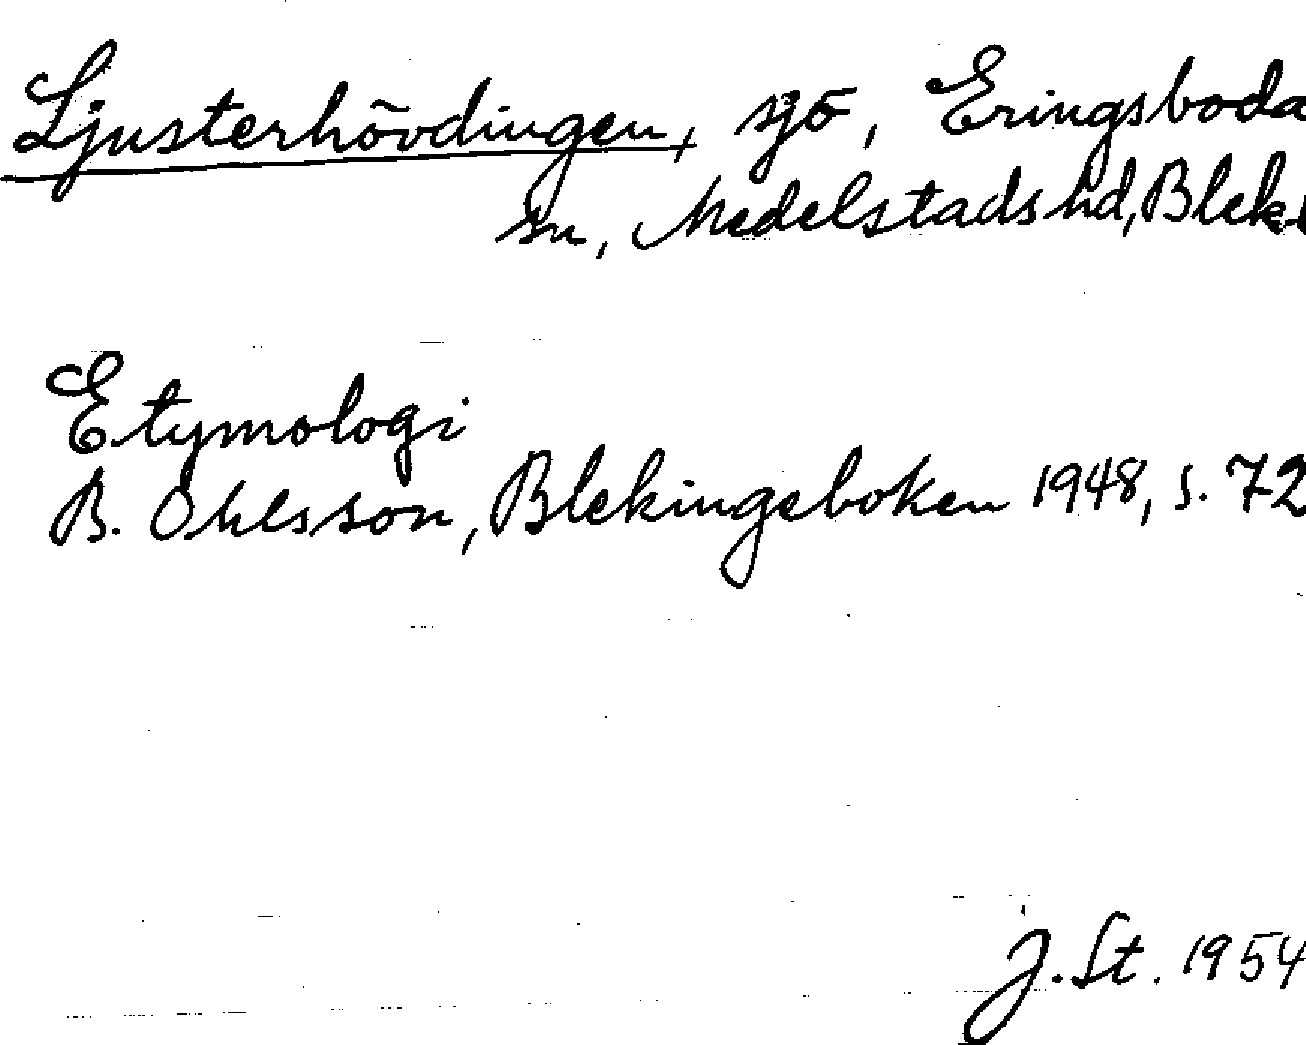 Ljusterhövdingen, sjö, Eringsboda
sn, Medelstads hd, Blek.
Etymologi
B. Ohlsson, Blekingeboken 1948, s. 72
J. St. 1954